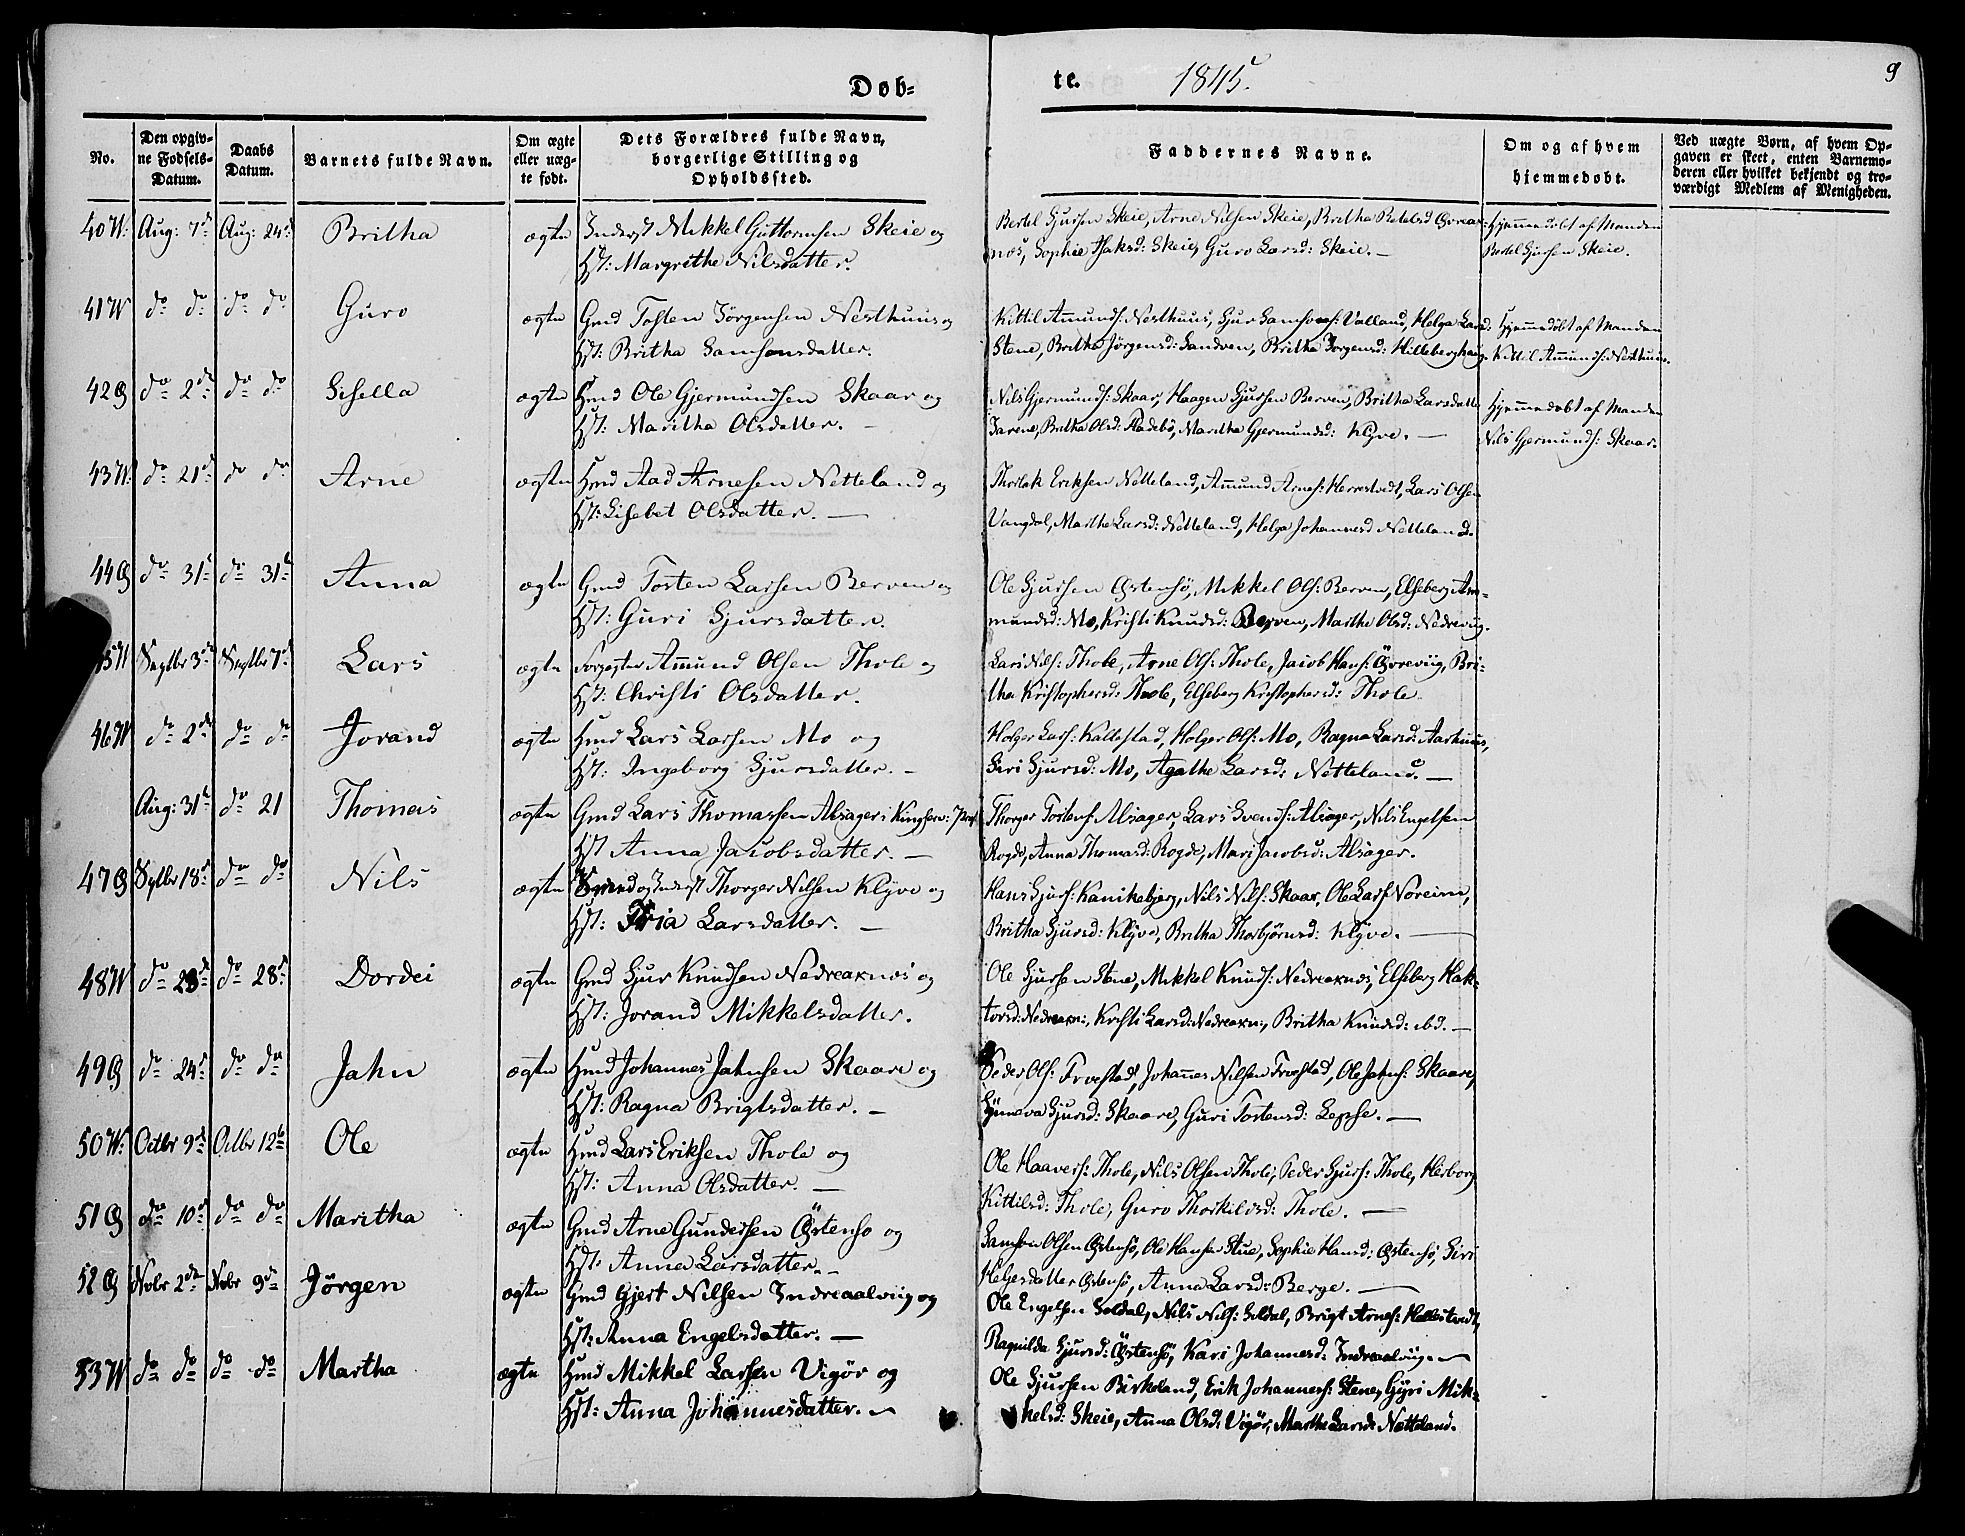 Døb-
te. 1845.
9
No. Den opgiv-
ne Fødsels-
Datum. Daabs
Datum. Barnets fulde Navn. Om ægte
eller uæg-
te født. Dets Forældres fulde Navn,
borgerlige Stilling og
Opholdssted. Faddernes Navne. Om og af hvem
hjemmedøbt. Ved uægte Børn, af hvem Op-
gaven er skeet, enten Barnemo-
deren eller hvilket bekjendt og tro-
værdigt Medlem af Menigheden.
40 W: Aug: 7d Aug: 24d Britha ægte Inderst Mikkel Guttormsen Skeie og
Hst: Margrethe Nilsdatter.
Bertel Sjursen Skeie, Arne Nilsen Skeie, Britha
nos, Sophie Isaksd: Skeie, Guro Larsd: Skeie. —
Hjemmedøbt af Manden
Bertel Sjursen Skeie.
41 W do do do do Guro ægte Gmd Tosten Jørgensen Nesthuus og
Hst: Britha Samsonsdatter.
Kittil Amunds: Nesthuus, Sjur Samsons: Valland, Helga Larsd:
Stene, Britha Jørgensd: Sandven, Britha Jørgensd: Hilleberghaug.
Hjemmedøbt af Manden
Kittil Amunds: Nesthuus.
42 Ø do 2d do do Sisella ægte Hmd Ole Gjermundsen Skaar og
Hst: Maritha Olsdatter. —
Nils Gjermunds: Skaar, Haagen Sjursen Berven, Britha Larsdatter
Britha Olsd: Fladebø, Maritha Gjermundsd: Klyve. —
Hjemmedøbt af Manden
Nils Gjermunds: Skaar.
43 W: do 21d do do Arne ægte Hmd Aad Arnesen Netteland og
Hst: Lisebet Olsdatter. —
Thorlak Eriksen Netteland, Amund Arnes: Herrestvedt, Lars Olsen
Vangdal, Martha Larsd: Netteland, Helga Johannesd Netteland.
44 Ø do 31t do 31t Anna ægte Gmd Torsten Larsen Berven og
Hst: Guri Sjursdatter.
Ole Sjursen Østensø, Mikkel Ols: Berven, Elseberg Am-
mundsd: Mo, Kristi Knudsd: Berven, Martha Olsd: Nedreviig.
45 W Septbr 3d Septbr 7d Lars ægte Forpagter Amund Olsen Thole og
Hst: Christi Olsdatter.
Lars Nils: Thole, Arne Ols: Thole, Jacob Hans: Øvreviig, Bri-
tha Kristophersd: Thole, Elseberg Kristophersd: Thole.
46 W do 2d do do Jorand ægte Hmd Lars Larsen Mo og
Hst: Ingeborg Sjursdatter. —
Holger Lars: Kallestad, Holger Ols: Mo, Ragna Larsd: Aarhuus,
Siri Sjursd: Mo, Agathe Larsd: Netteland. —
Aug: 31t do 21 Thomas ægte Gmd Lars Thomassen Alsager i Kingserv:
Hst Anna Jacobsdatter. —
Thorger Tostens: Alsager, Lars Svends: Alsager, Nils Engelsen
Rogde, Anna Thomasd: Rogde, Mari Jacobsd: Alsager.
47 Ø Septbr 18d do do Nils ægte Inderst Thorger Nilsen Klyve og
Hst: Larsdatter. —
Hans Sjurs: Kanikebjerg, Nils Nils: Skaar, Ole Lars: Noreim,
Britha Sjursd: Klyve, Britha Thorbjørnsd: Klyve. —
48 W do 23d do 28d Dordei ægte Gmd Sjur Knudsen Nedreaxnæs og
Hst: Jorand Mikkelsdatter.
Ole Sjursen Stene, Mikkel Knuds: Nedreaxnæs, Elseberg Hak-
torsd: Nedreaxn:, Kristi Larsd: Nedreaxn:, Britha Knudsd: ibd. —
49 Ø do 24d do do Jahn ægte Hmd Johannes Jahnsen Skaare og
Hst: Ragna Brigtsdatter. —
Peder Ols: Froestad, Johannes Nilsen Froestad, Ole Jahns: Skaare,
Synneva Sjursd: Skaare, Guri Torstensd: Lepse. —
50 W: Octbr 9d Octbr 12t Ole ægte Hmd Lars Eriksen Thole og
Hst: Anna Olsdatter. —
Ole Haavers: Thole, Nils Olsen Thole, Peder Sjurs: Thole, Herborg
Kittilsd: Thole, Guro Thorkilsd: Thole. —
51 Ø do 10d do do Maritha ægte Gmd Arne Gundersen Østensø og
Hst: Anna Larsdatter. —
Samson Olsen Østensø, Ole Hansen Stue, Sophie Hansd: Østensø, Siri
Helgesdatter Østensø, Anna Larsd: Berge. —
52 Ø Novbr 2den Novbr 9de Jørgen ægte Gmd Gjert Nilsen Indreaalviig og
Hst: Anna Engelsdatter. —
Ole Engelsen Soldal, Nils Nils: Soldal, Brigt Arnes: Hallestvedt,
Ragnilda Sjursd: Østensø, Kari Johannesd: Indreaalviig. —
53 W do do do do Martha ægte Hmd Mikkel Larsen Vigør og
Hst: Anna Johannesdatter. —
Ole Sjursen Birkeland, Erik Johanness: Stene, Gyri Mik-
kelsd: Skeie, Anna Olsd: Vigør, Martha Larsd: Netteland.